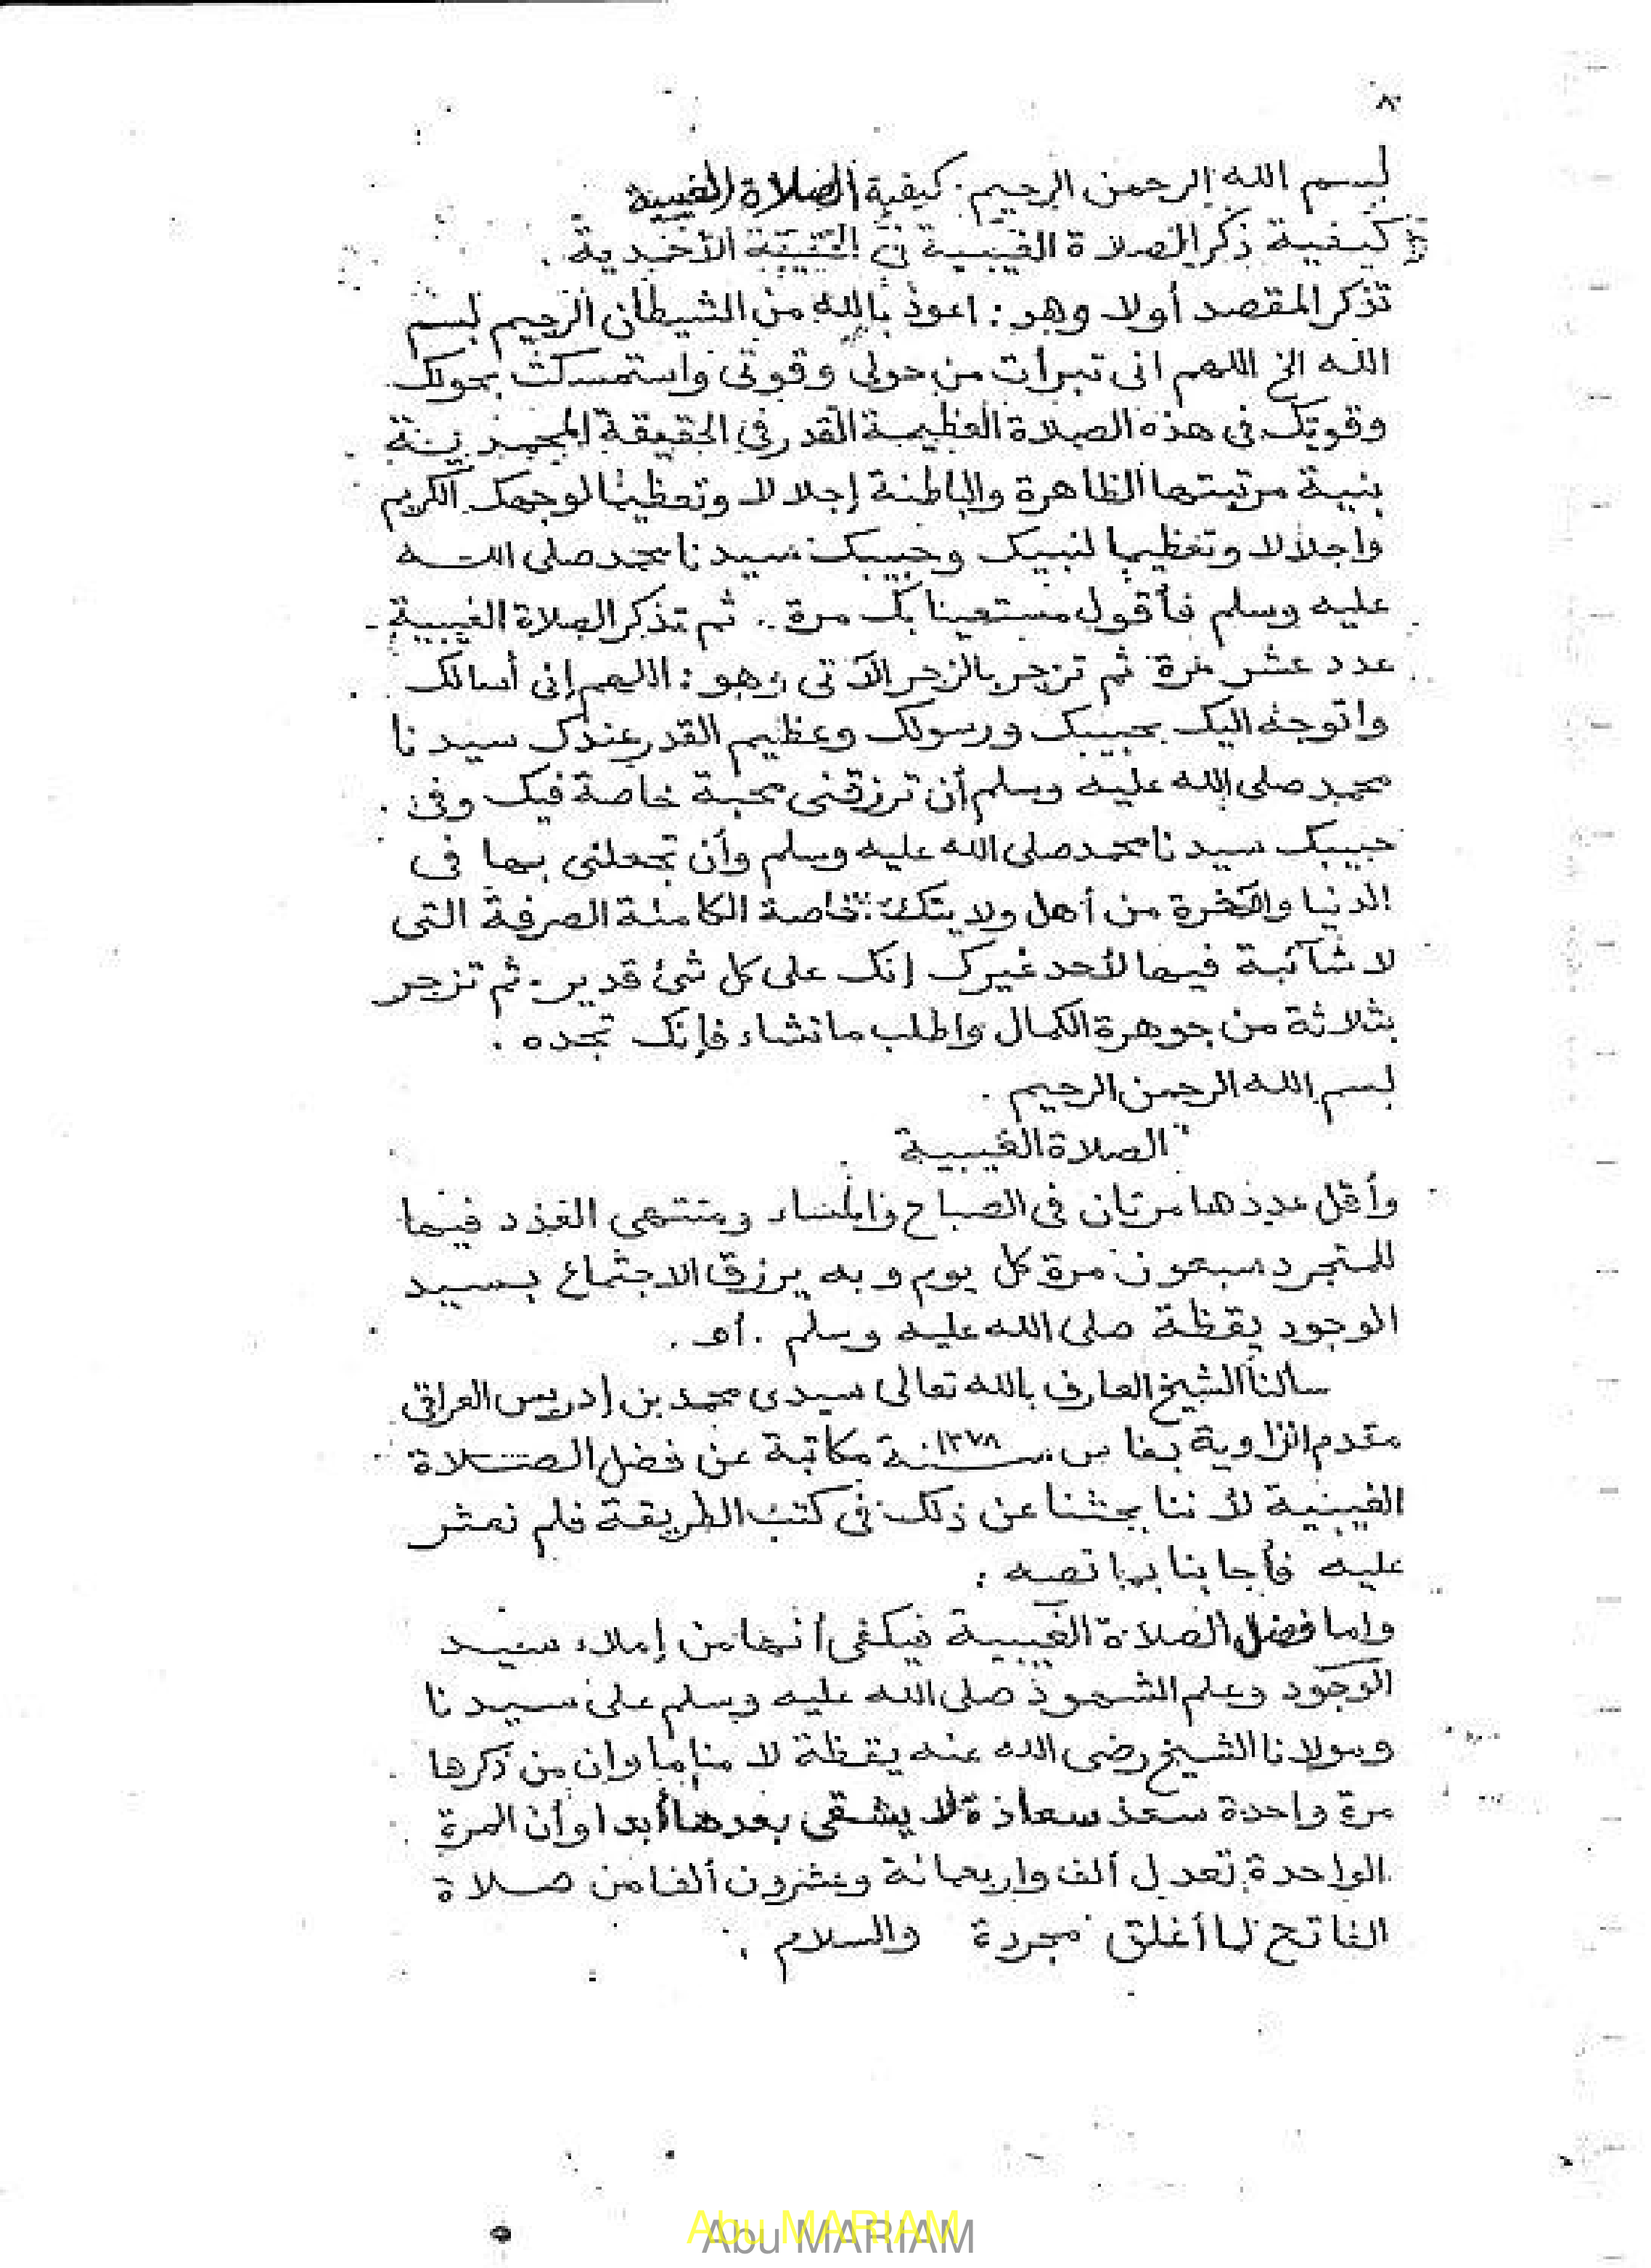 ٨٠
بسم الله الرحمن الرحيم. كيفية الصلاة الغيبية
كيفية ذكر الصلاة الغيبية في الأحمدية.
تذكر المقصد أولا وهو: اعوذ بالله من الشيطان الرجيم بسم
الله الخ اللهم انى تبرأت من حولى وقوتى واستمسكت بحولك
وقوتك فى هذه الصلاة العظيمة القدر في الحقيقة المحمدية
بنية مرتبتها الظاهرة والباطنة إجلالا وتعظيما لوجهك الكريم
واجلالا وتعظيما لنبيك وحبيبك سيدنا محمد صلى الله
عليه وسلم فأقول مستعينا بك مرة .. ثم تذكر الصلاة الغيبية
عدد عشر مرة ثم تزجر بالزجر الآتى وهو: اللهم إنى أسالك
واتوجه اليك بحبيبك ورسولك وعظيم القدر عندك سيدنا
محمد صلى الله عليه وسلم أن ترزقنى محبة خاصة فيك وفى
حبيبك سيدنا محمد صلى الله عليه وسلم وأن تجعلنى بها فى
الدنيا والآخرة من أهل ولايتك الخاصة الكاملة الصرفة التى
لا شآئبة فيها لأحد غيرك إنك على كل شئ قدير. ثم تزجر
بثلاثة من جوهرة الكمال واطلب ما تشاء فإنك تجده.
بسم الله الرحمن الرحيم.
الصلاة الغيبية
وأقل عددها مرتان فى الصباح والمساء ومنتهى العدد فيما
للمتجرد سبعون مرة كل يوم وبه يرزق الاجتماع بسيد
الوجود يقظة صلى الله عليه وسلم. أهـ.
سألنا الشيخ العارف بالله تعالى سيدى محمد بن إدريس العراقى
مقدم الزاوية بفاس سنة ١٣٧٨ مكاتبة عن فضل الصلاة
الغيبية لأننا بحثنا عن ذلك فى كتب الطريقة فلم نعثر
عليه فأجابنا بما نصه:
واما فضل الصلاة الغيبية فيكفى أنها من إملاء سيد
الوجود وعلم الشهود صلى الله عليه وسلم على سيدنا
ومولانا الشيخ رضى الله عنه يقظة لا مناما وان من ذكرها
مرة واحدة سعد سعادة لا يشقى بعدها أبدا وأن المرة
الواحدة تعدل ألف واربعمائة وعشرون ألفا من صلاة
الفاتح لما أغلق مجردة والسلام.
Abu MARIAM
Abu MARIAM